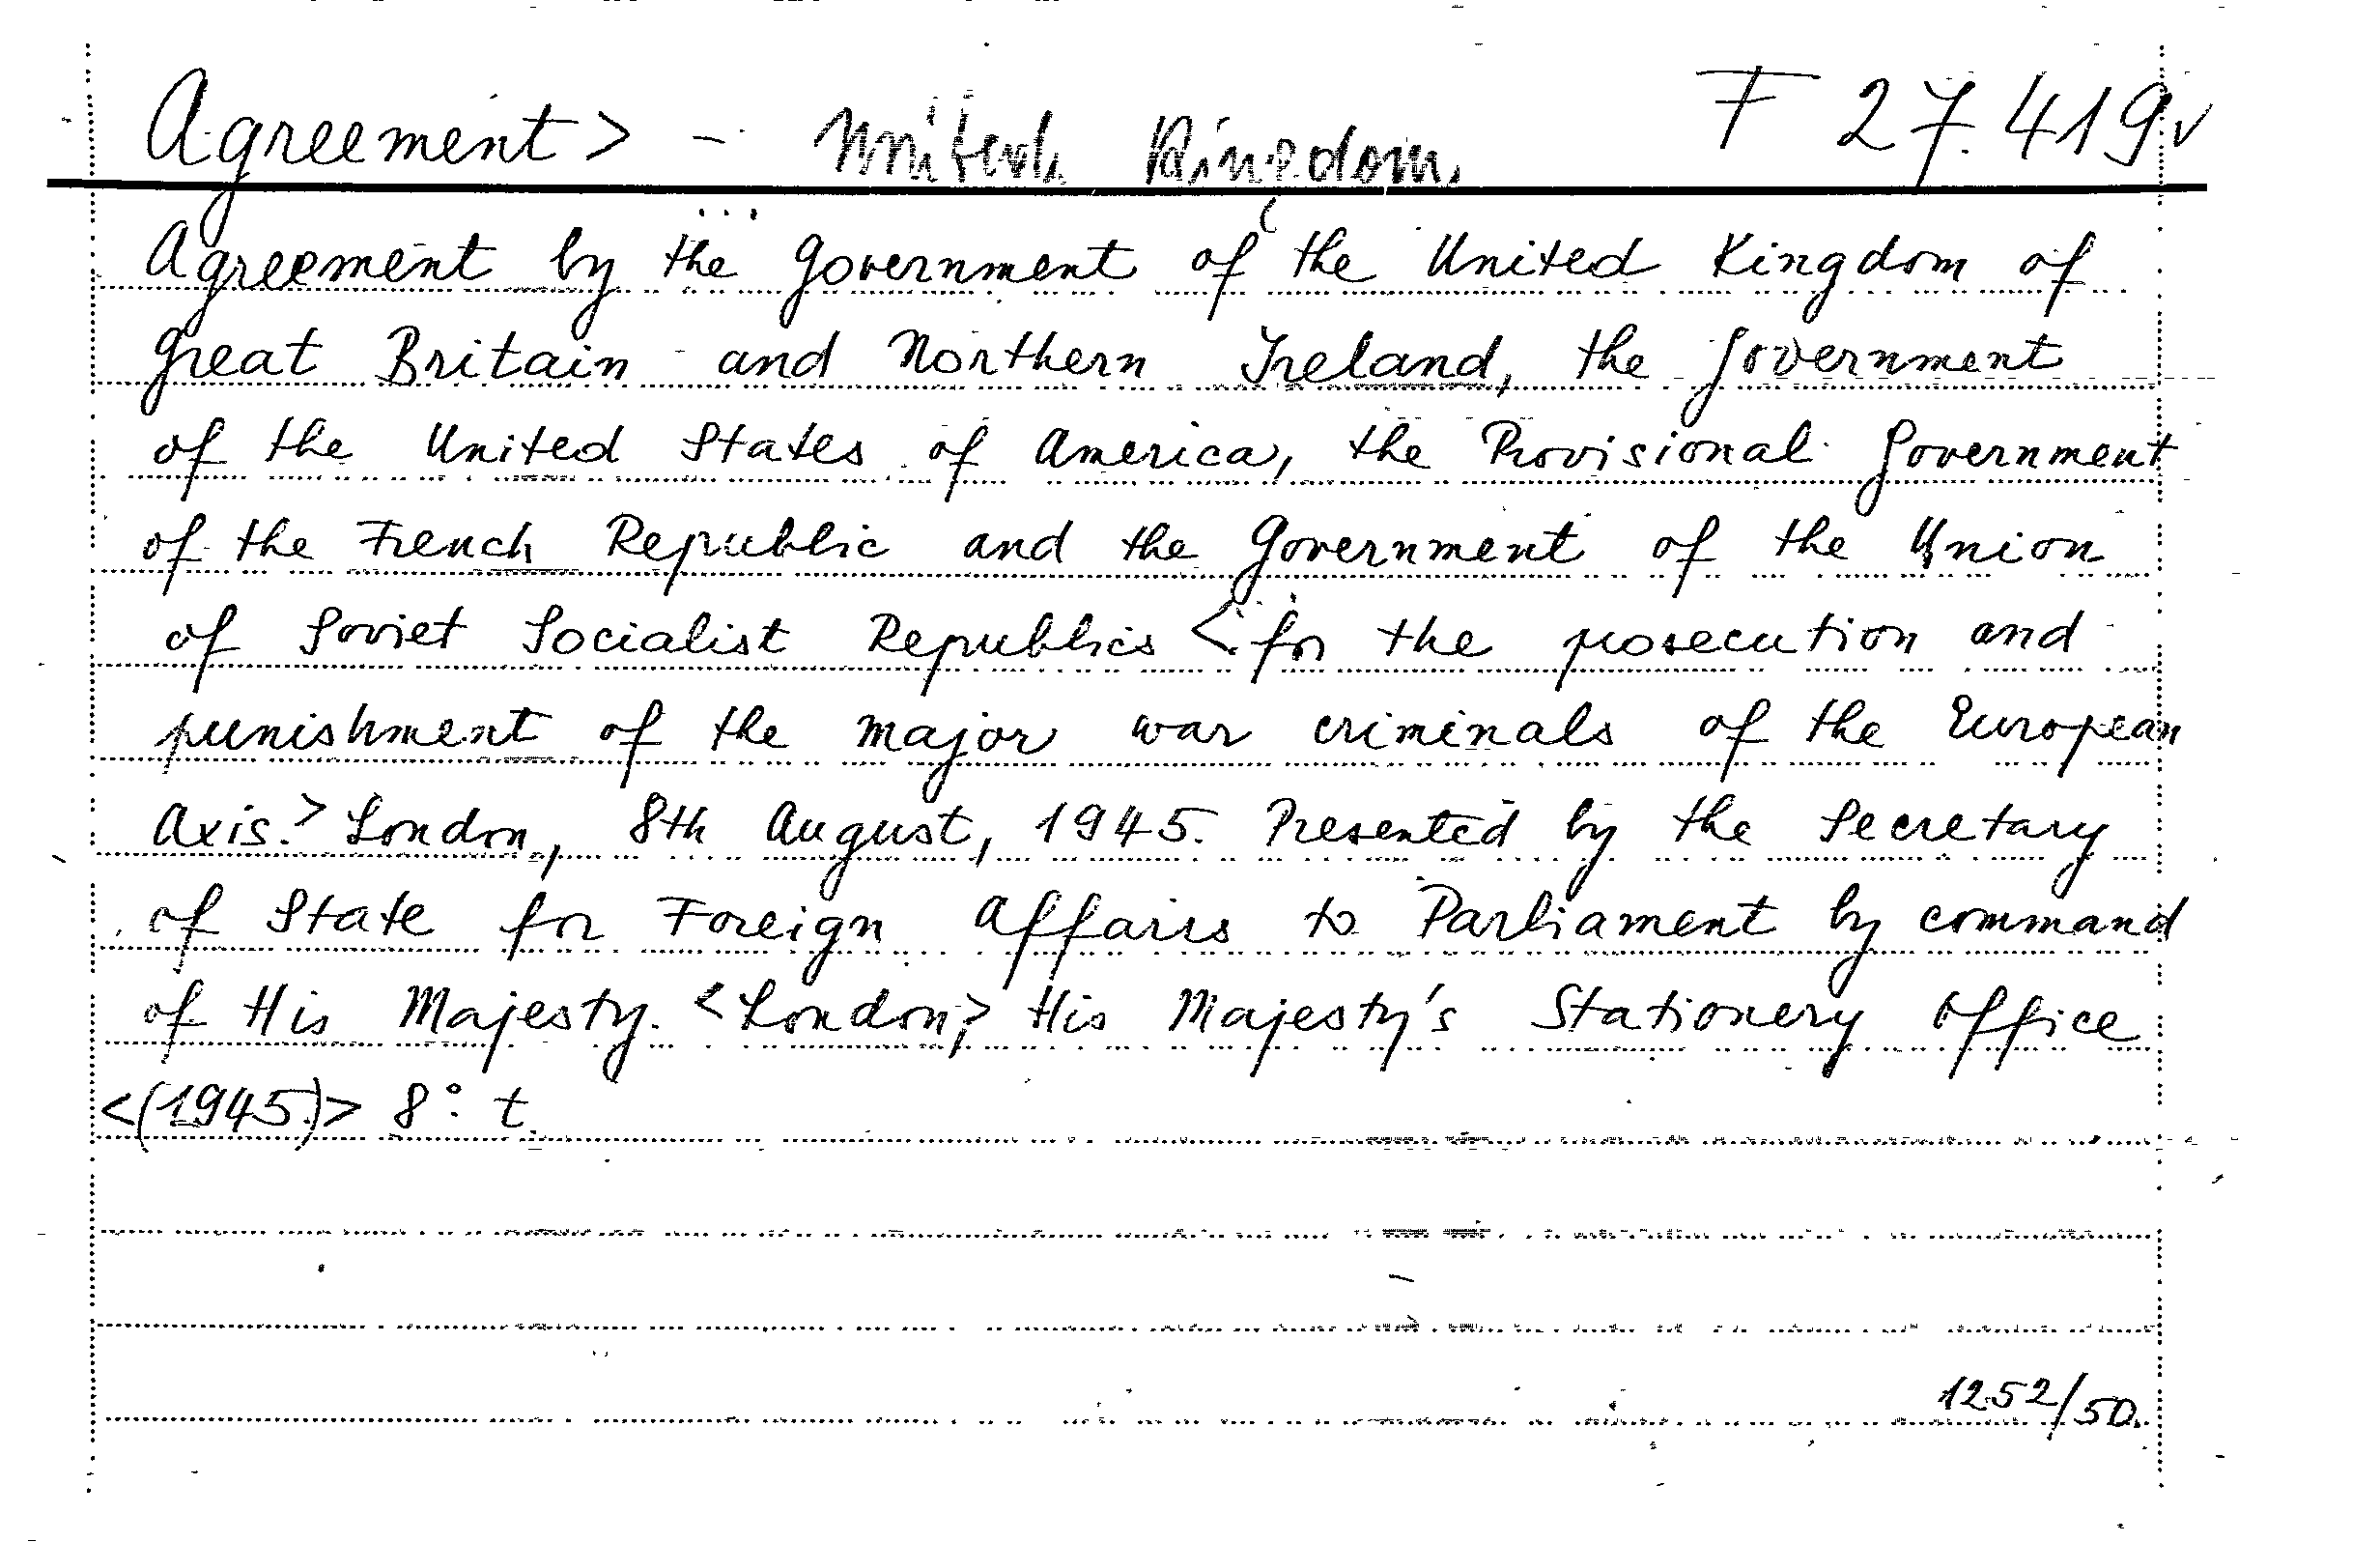 Agreement> - United Kingdom. F 27.419v
Agreement by the Government of the United Kingdom of
Great Britain and Northern Ireland, the Government
of the United States of America, the Provisional Government
of the French Republic and the Government of the Union
of Soviet Socialist Republics <for the prosecution and
punishment of the major war criminals of the European
Axis.> London, 8th August, 1945. Presented by the Secretary
of State for Foreign Affairs to Parliament by command
of His Majesty. <London,> His Majesty's Stationery Office
<(1945)> 8°. t.
1252/50.